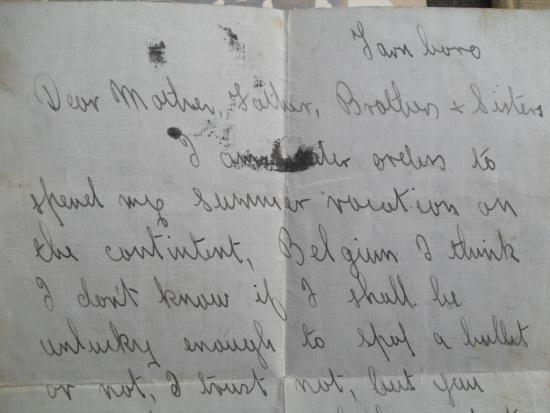 Farnboro
Dear Mother, Father, Brothers + Sisters
I am under orders to
spend my Summer vacation on
the contintent, Belgium I think
I don't know if I shall be
unlucky enough to stop a bullet
or not, I trust not, but you